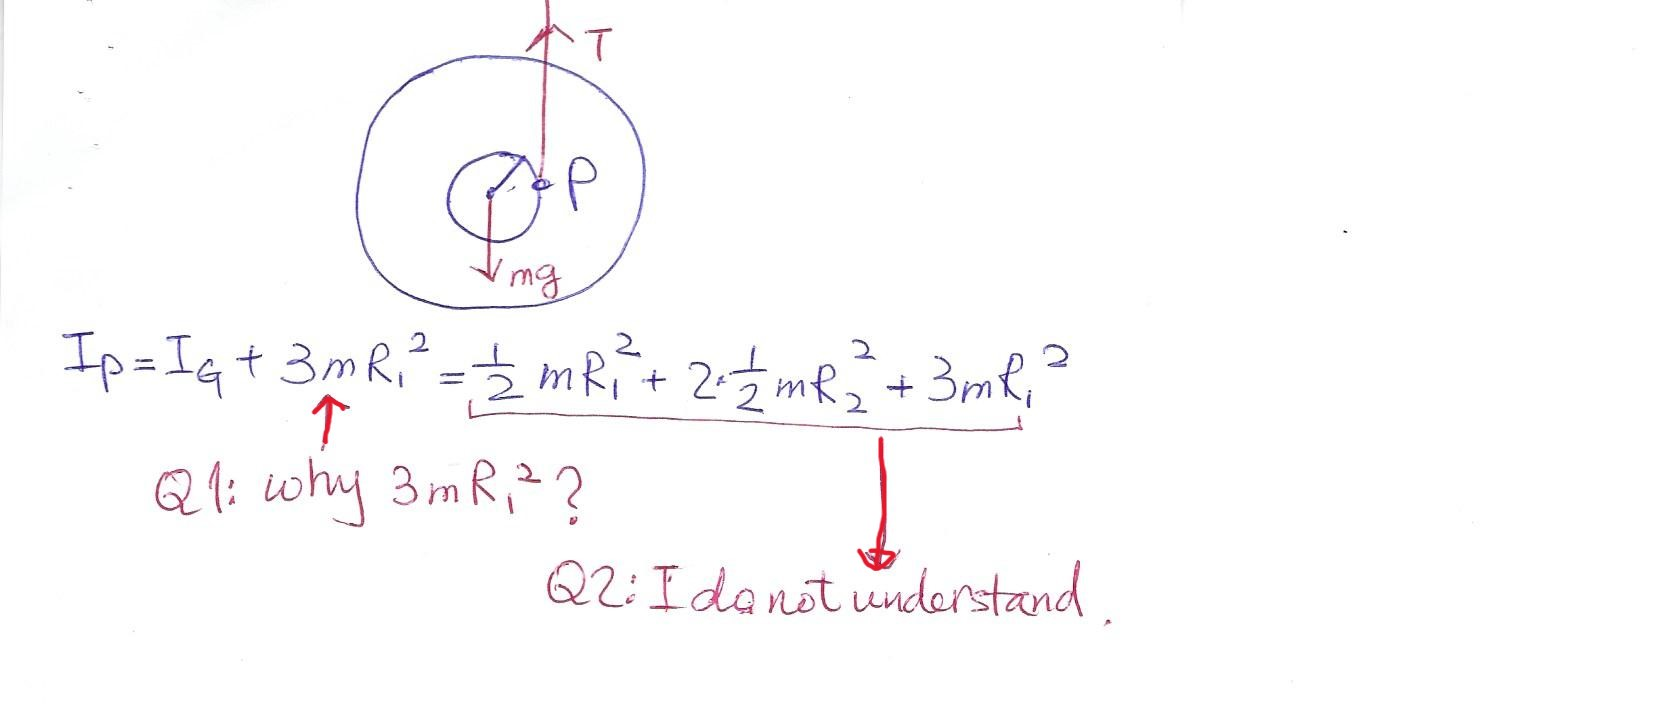 T
P
mg
I_P = I_G + 3mR₁² = ½ mR₁² + 2·½ mR₂² + 3mR₁²
Q1: why 3mR₁²?
Q2: I do not understand.